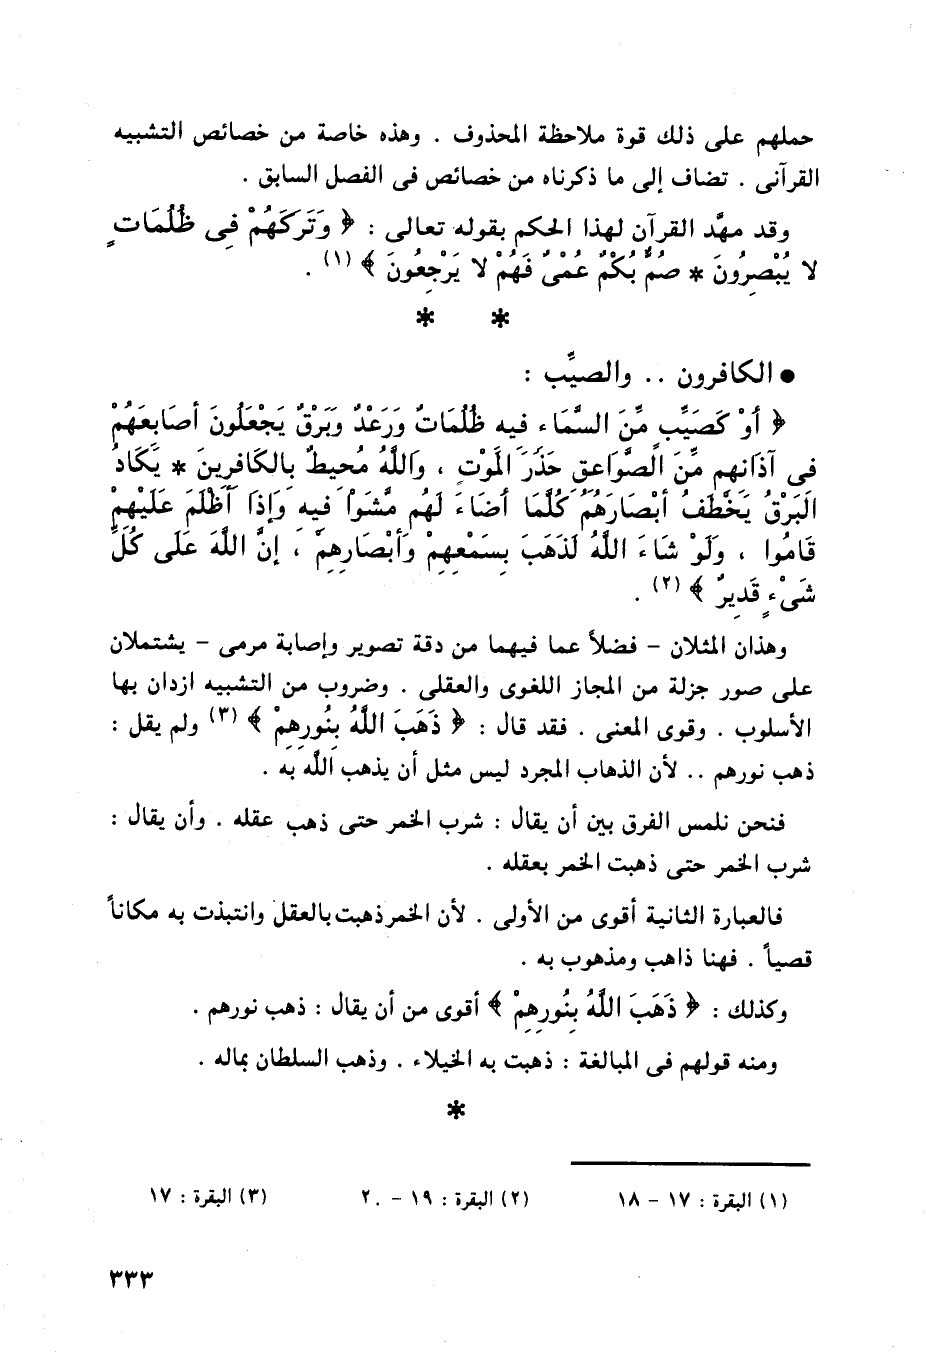 حملهم على ذلك قوة ملاحظة المحذوف . وهذه خاصة من خصائص التشبيه
القرآنى . تضاف إلى ما ذكرناه من خصائص فى الفصل السابق .
وقد مهَّد القرآن لهذا الحكم بقوله تعالى : ﴿ وَتَرَكَهُمْ فِى ظُلُمَاتٍ
لا يُبْصِرُونَ * صُمٌّ بُكْمٌ عُمْىٌ فَهُمْ لا يَرْجِعُونَ ﴾ (١) .
* *
● الكافرون .. والصيِّب :
﴿ أَوْ كَصَيِّبٍ مِّنَ السَّمَاءِ فِيهِ ظُلُمَاتٌ وَرَعْدٌ وَبَرْقٌ يَجْعَلُونَ أصَابِعَهُمْ
فِى آذَانِهِم مِّنَ الصَّوَاعِقِ حَذَرَ الْمَوْتِ ، وَاللَّهُ مُحِيطٌ بِالكَافِرِينَ * يَكَادُ
الْبَرْقُ يَخْطَفُ أبْصَارَهُمْ كُلَّمَا أضَاءَ لَهُم مَّشَوْا فِيهِ وَإذَا أظْلَمَ عَلَيْهِمْ
قَامُوا ، وَلَوْ شَاءَ اللَّهُ لَذَهَبَ بِسَمْعِهِمْ وَأبْصَارِهِمْ ، إنَّ اللَّهَ عَلَى كُلِّ
شَىْءٍ قَدِيرٌ ﴾ (٢) .
وهذان المثلان – فضلاً عما فيهما من دقة تصوير وإصابة مرمى – يشتملان
على صور جزلة من المجاز اللغوى والعقلى . وضروب من التشبيه ازدان بها
الأسلوب . وقوى المعنى . فقد قال : ﴿ ذَهَبَ اللَّهُ بِنُورِهِمْ ﴾ (٣) ولم يقل :
ذهب نورهم .. لأن الذهاب المجرد ليس مثل أن يذهب اللَّه به .
فنحن نلمس الفرق بين أن يقال : شرب الخمر حتى ذهب عقله . وأن يقال :
شرب الخمر حتى ذهبت الخمر بعقله .
فالعبارة الثانية أقوى من الأولى . لأن الخمر ذهبت بالعقل وانتبذت به مكاناً
قصياً . فهنا ذاهب ومذهوب به .
وكذلك : ﴿ ذَهَبَ اللَّهُ بِنُورِهِمْ ﴾ أقوى من أن يقال : ذهب نورهم .
ومنه قولهم فى المبالغة : ذهبت به الخيلاء . وذهب السلطان بماله .
*
(١) البقرة : ١٧ – ١٨ (٢) البقرة : ١٩ – ٢٠ (٣) البقرة : ١٧
٣٣٣